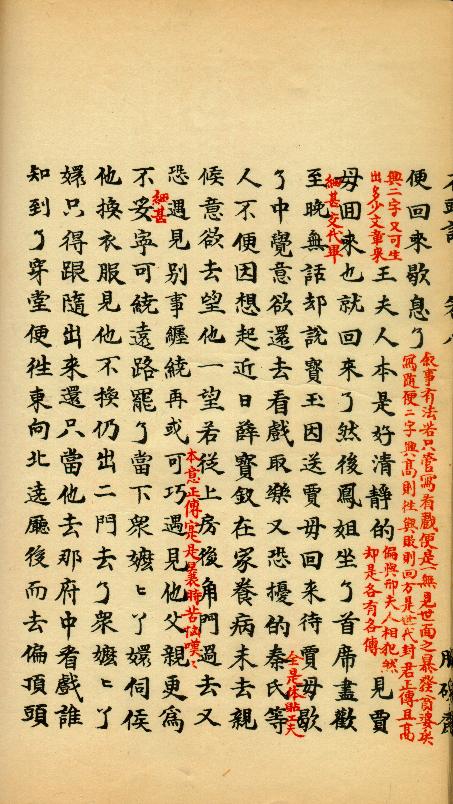 石頭記 卷八 脂硯齋
便回來歇息了
叙事有法若只管寫看戲便是一無見世面之暴發貧婆矣
寫隨便二字興高則徃興敗則回方是世代封君正傳且高
興二字又可生
出多少文章來
王夫人本是好清靜的
偏與邢夫人相犯然
却是各有各傳
見賈
母回來也就回來了然後鳳姐坐了首席盡歡
細甚交代畢
至晚無話却說寳玉因送賈母回來待賈母歇
全是体貼工夫
了中覺意欲還去看戲取樂又恐擾的秦氏等
人不便因想起近日薛寳釵在家養病未去親
候意欲去望他一望若從上房後角門過去又
本意正傳寔是曩時苦惱嘆〻
恐遇見别事纏繞再或可巧遇見他父親更為
細甚
不妥寧可繞遠路罷了當下衆嬷〻丫嬛伺侯
他換衣服見他不換仍出二門去了衆嬷〻丫
嬛只得跟隨出來還只當他去那府中看戲誰
知到了穿堂便徃東向北遶廳後而去偏頂頭